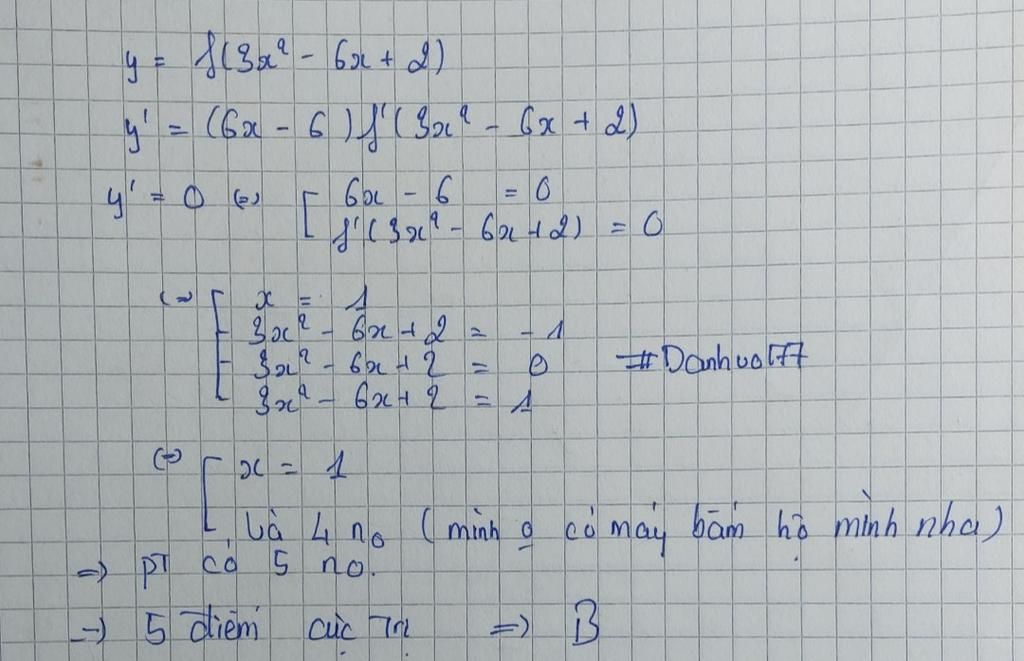 y = f(3x² - 6x + 2)
y' = (6x - 6) f'(3x² - 6x + 2)
y' = 0 (=) [ 6x - 6 = 0
f'(3x² - 6x + 2) = 0
(=) [ x = 1
3x² - 6x + 2 = - 1
3x² - 6x + 2 = 0 #Danhvo177
3x² - 6x + 2 = 1
(=) [ x = 1
Và 4 no (mình o có máy bấm hộ mình nha)
=> PT có 5 no.
=> 5 điểm cực trị => B